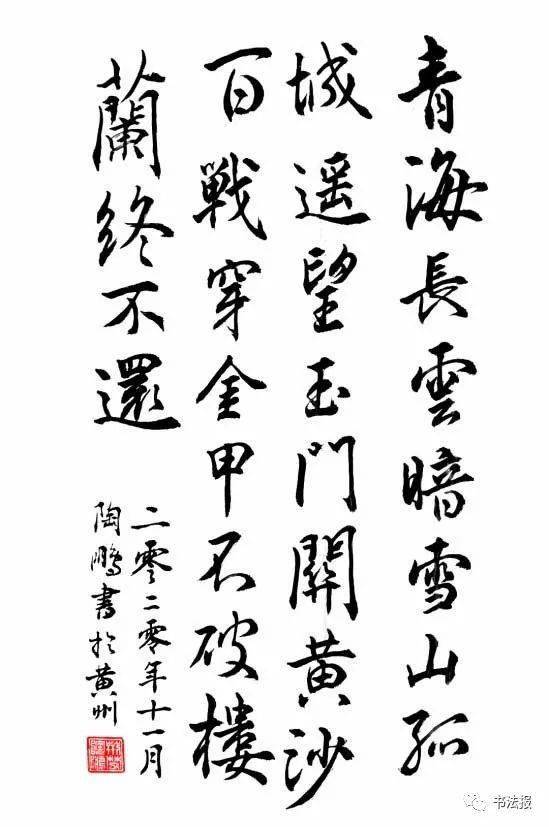 青海長雲暗雪山孤
城遥望玉門關黄沙
百戰穿金甲不破樓
蘭終不還
二零二零年十一月
陶鵬書於黄州
书法报